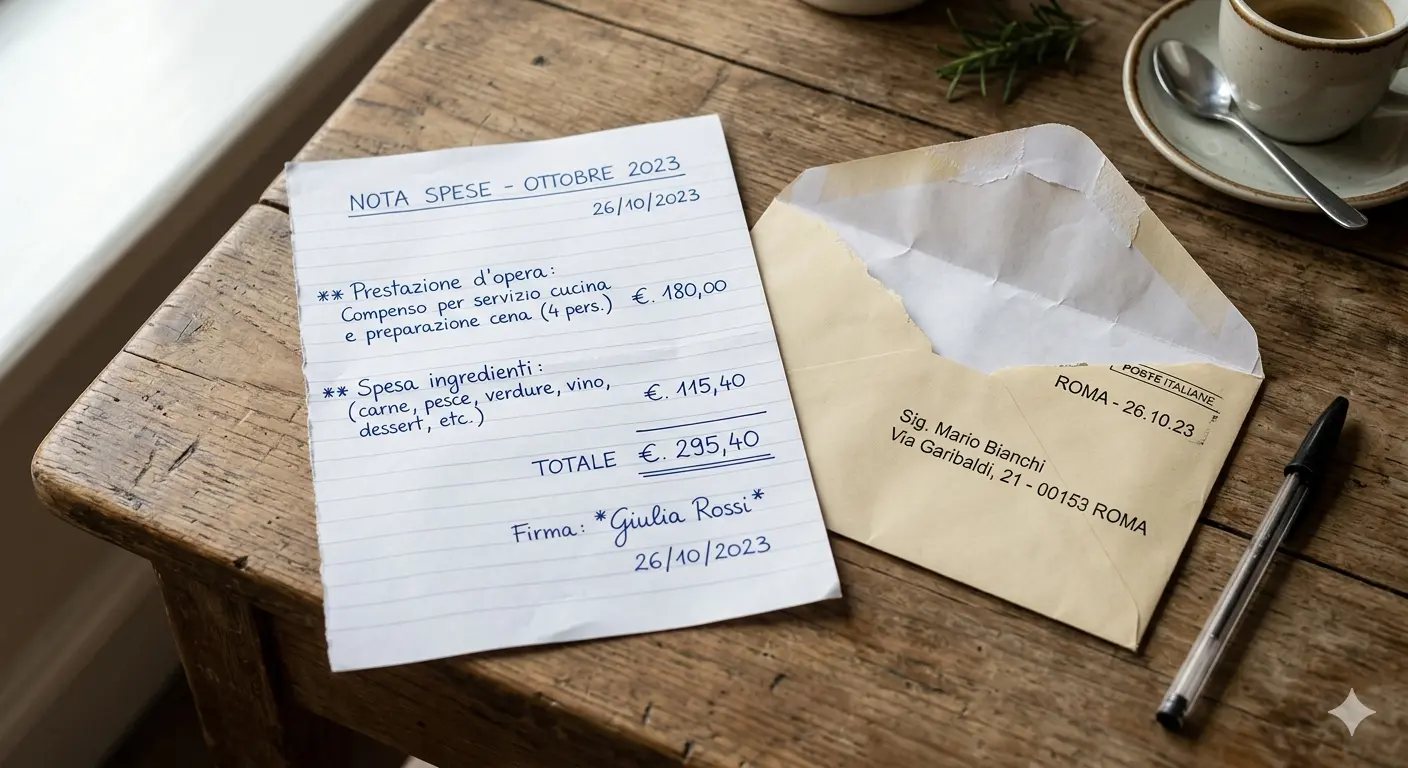 NOTA SPESE - OTTOBRE 2023
26/10/2023
** Prestazione d'opera:
Compenso per servizio cucina
e preparazione cena (4 pers.) €. 180,00
** Spesa ingredienti:
(carne, pesce, verdure, vino,
dessert, etc.) €. 115,40
TOTALE €. 295,40
Firma: *Giulia Rossi*
26/10/2023
POSTE ITALIANE
ROMA - 26.10.23
Sig. Mario Bianchi
Via Garibaldi, 21 - 00153 ROMA